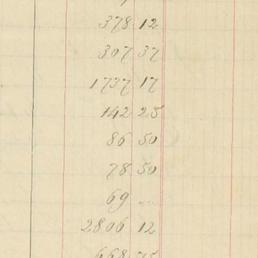 378 12
307 37
1737 17
142 25
86 50
78 50
69 ..
2806 12
668 75